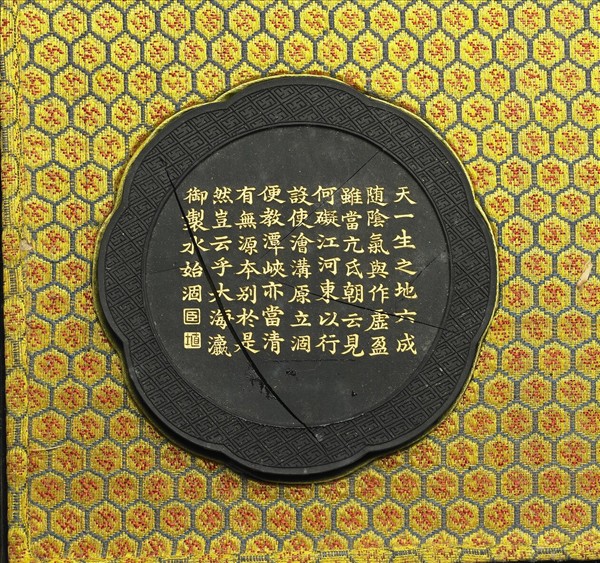 天一生之地六成
随陰氣與作虛盈
雖當亢氐朝云見
何礙江河東以行
設使澮溝原立涸
便教潭峽亦當清
有無源本别於是
然豈云乎大海瀛
御製水始涸